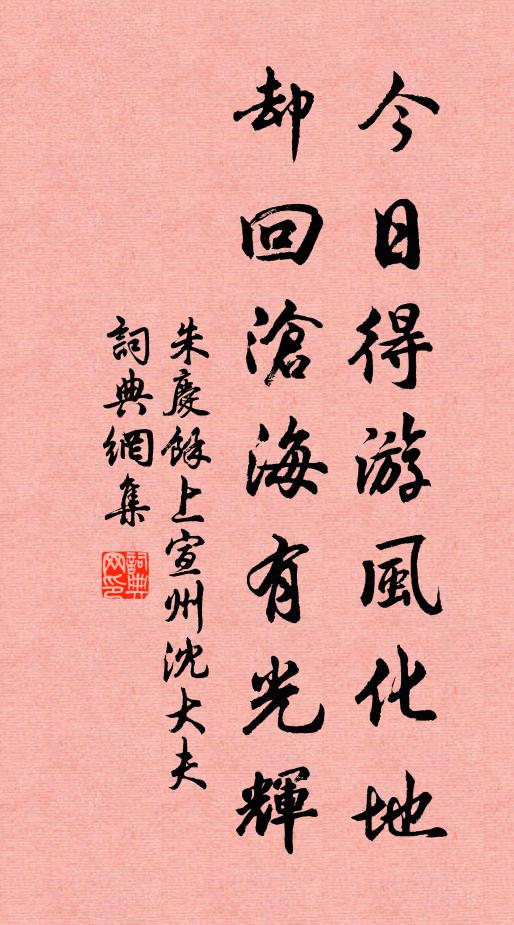 今日得游風化地
却回滄海有光輝
朱慶餘上宣州沈大夫
詞典網集
詞典網印